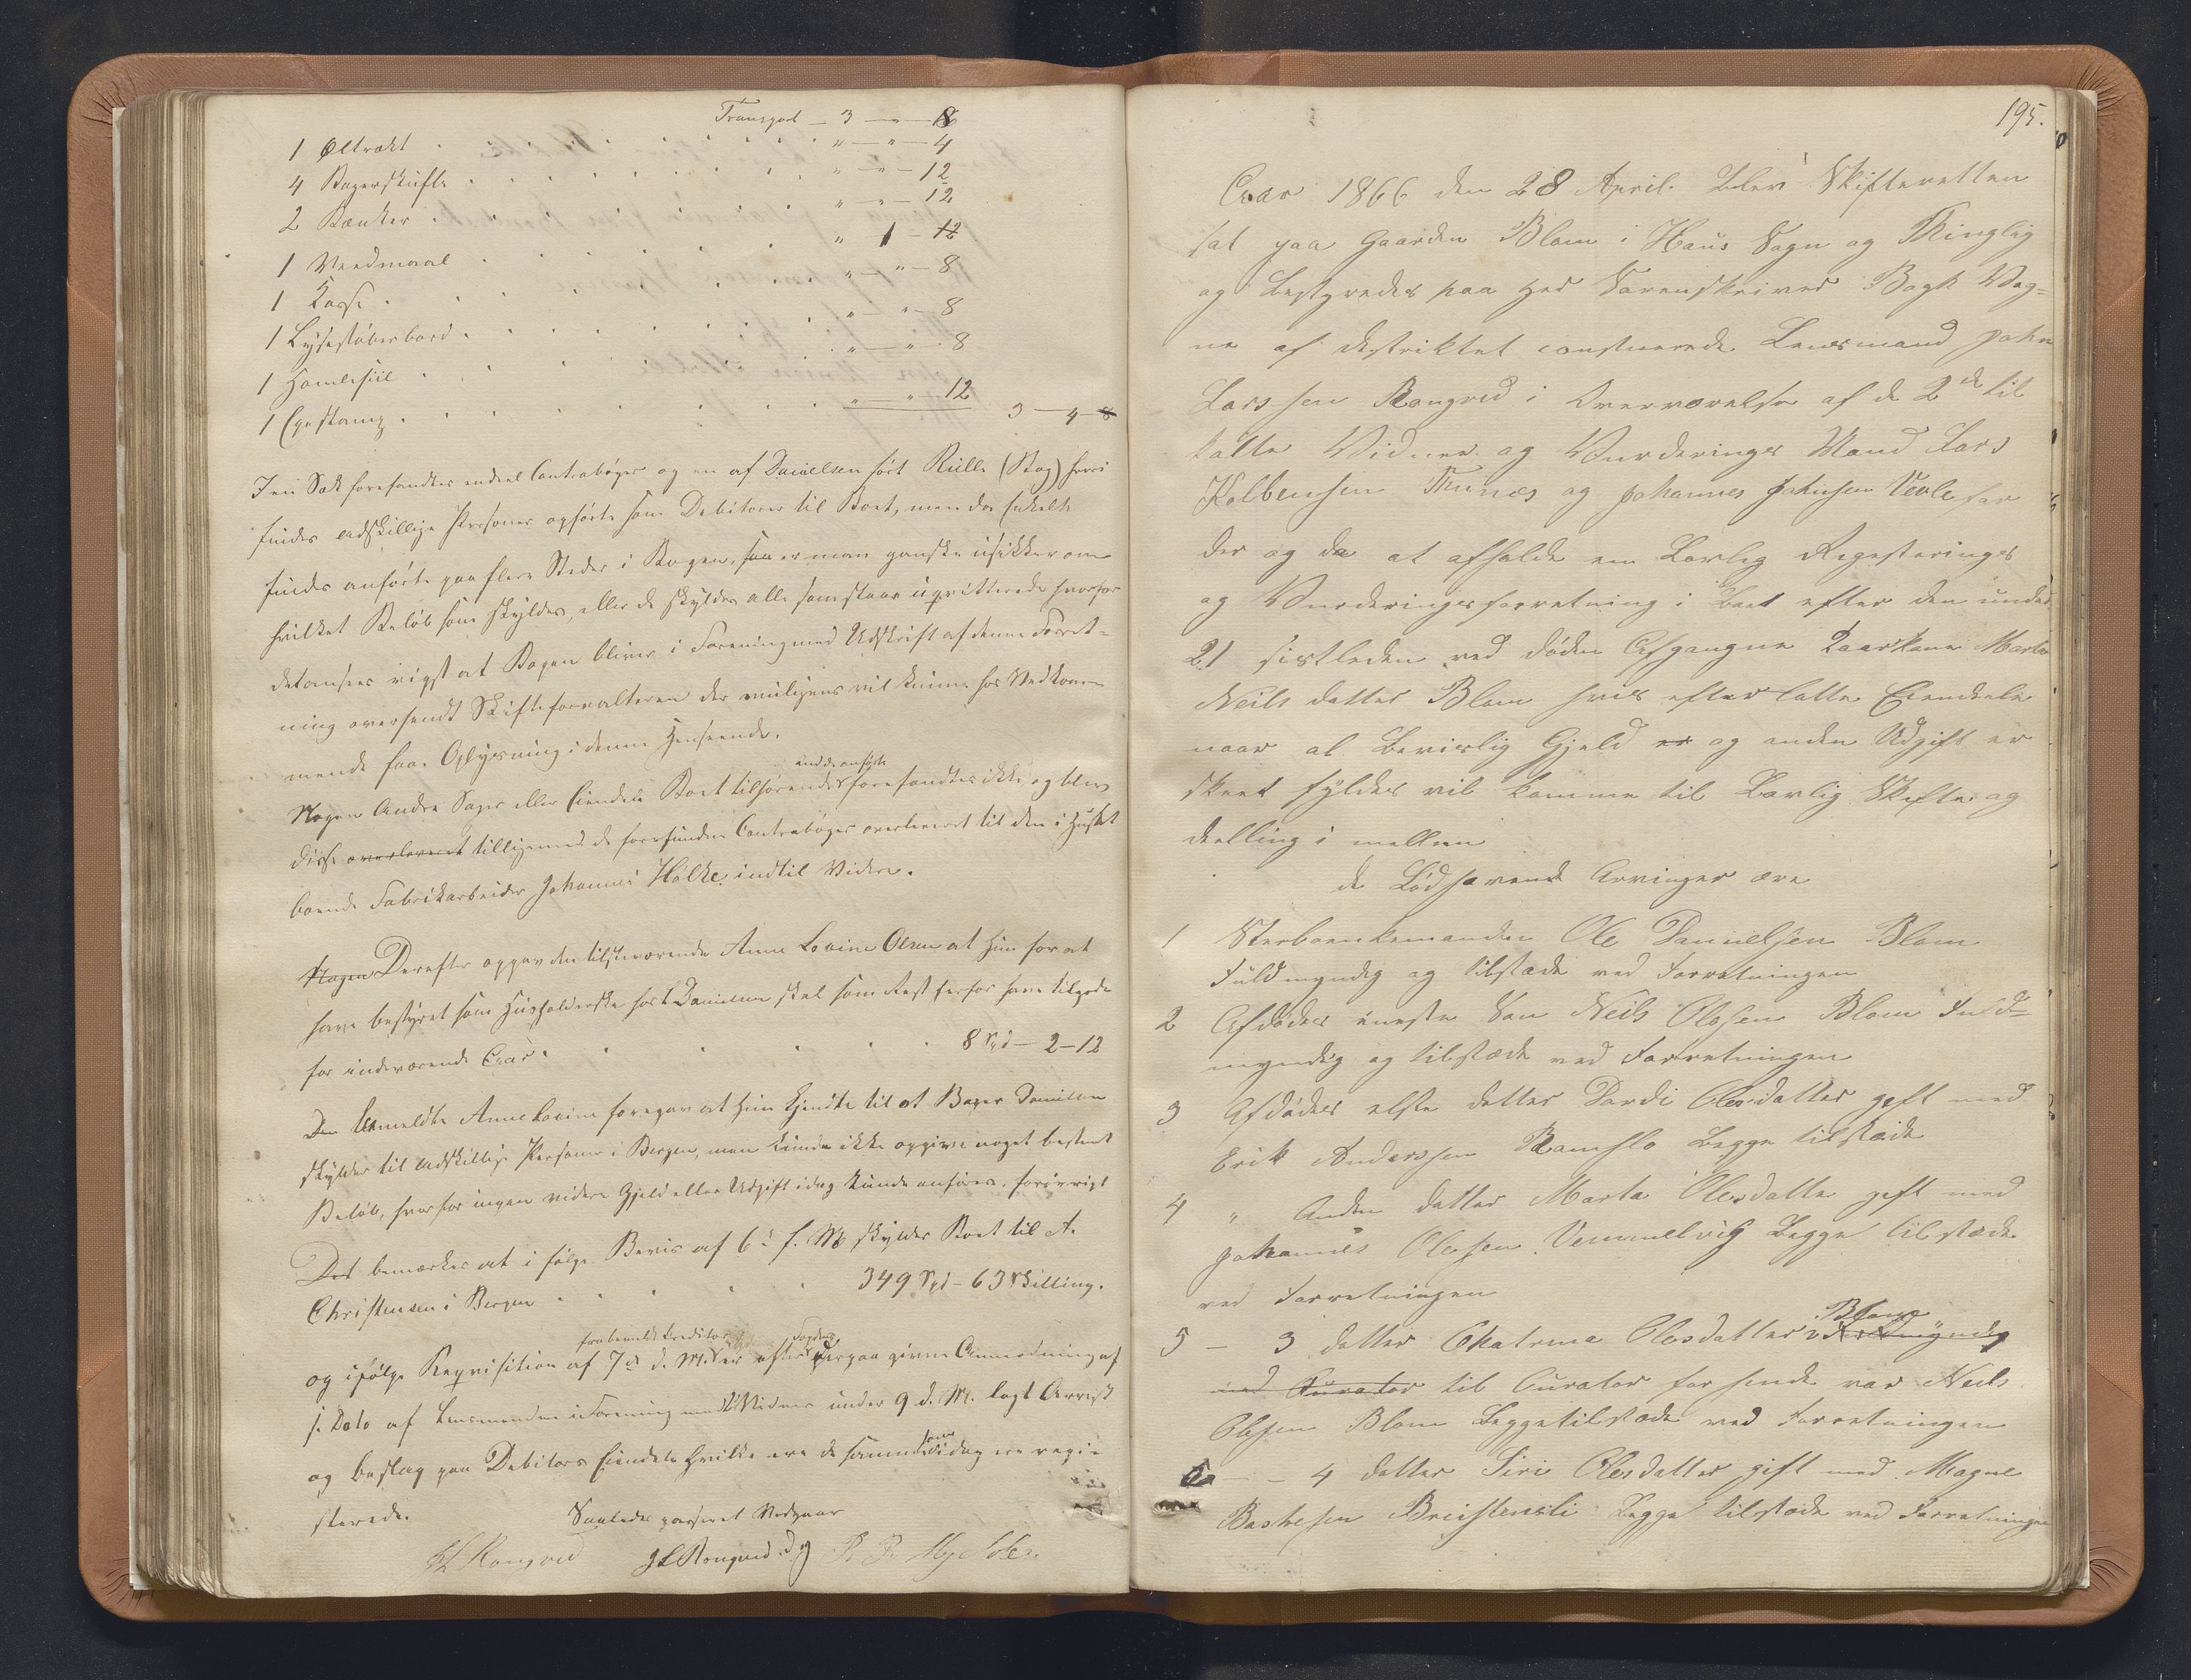 Transport – 3 – " – 8
1 Øltrakt . . . " – " – 4
4 Bagerskufle . . . " – " – 12
2 Bænker . . . " – " – 12
1 Vævdmaal . . . " 1 – 12
1 Kasse . . . " – " – 8
1 Lysestøberbord . . . " – " – 8
1 Homlesiil . . . " – " – 8
1 Egestamp . . . " – " – 12
3 – 4 – 8
I en Sæk forefandtes endeel Contrabøger og en af Danielsen ført Rulle (Bog) hvori
findes adskillige Personer opførte som Debitorer til Boet, men da Enkelte
findes anførte paa flere Steder i Bogen, saa er man ganske usikker om
hvilket Beløb som skyldes, eller de skyldes alle som staar uqvitterede hvorfor
detansees rigst at Bogen bliver i Forening med Udskrift af denne Forret-
ning oversendt Skifteforvalteren der muligens vil kunne hos Vedkom-
mende faae Oplysning i denne Henseende.
Nogen Andre Sager eller Eiendele Boet tilhørende end de anførte forefandtes ikke og blev
disse overleveret tilligemed de forefundne Contrabøger overleveret til den i Huset
boende Fabrikarbeider Johannes Holke indtil Videre.
Nogen Derefter opgav den tilstæværende Anne Lovine Olsen at hun for at
have bestyret som Huusholderske hos L Danielsen skal som Rest herfor have tilgode
for indeværende Aar . . . 8 Spd – 2 – 12
Den Ermeldte Anne Lovine foregav at hun kjendte til at Bager Danielsen
skylder til adskillige Personer i Bergen, men kunde ikke opgive noget bestemt
Beløb, hvorfor ingen videre Gjeld eller Udgift idag kunde anføres. forøvrigt
Det bemærkes at i følge Bevis af 6te f. M. skylder Boet til A.
Christensen i Bergen . . . 349 Spd – 63 Skilling.
og ifølge Reqvisition af 7de d. M. fra bemeldte Creditor er efter Fogdens derpaa givne Anmodning af
s. Dato af Lensmanden i Forening med 2 Vidner under 9 d. M. lagt Arrest
og beslag paa Debitors Eiendele hvilke ere de samme som idag ere regi-
sterede.
Saaledes passeret Vedgaar
JL Rongved JL Rongved. d.g.
195.
Aar 1866 den 28 April. blev Skifteretten
sat paa Gaarden Blom i Haus Sogn og Thinglag
og bestyredes paa Hr Sorenskriver Bagh Veg-
ne af distriktet constuerede Lensmand John
Larssen Rongved i Overværelse af de 2de til
kalte Vidner og Vurderings Mænd Lars
Kolbensen Tunæs og Johannes Johnsen Veole for
der og da at afholde en Lovlig Regesterings
og Vurderingsforretning i boet efter den under
21 sistleden ved døden Afgangne Kaarkone Marta
Neils datter Blom hvis efterlatte Eiendele
naar al bevislig Gjeld er og anden Udgift er
skeet fyldes vil komme til Lovlig Skifte og
deelling i mellem
de Lødhavende Arvinger ere
1 Sterboenkemanden Ole Danielsen Blom
Fuldmyndig og tilstæde ved Forretningen
2 Afdødes eneste Søn Neils Olesen Blom Fuld-
myndig og tilstæde ved Forretningen
3 Afdødes elste datter Dordi Olesdatter geft med
Erik Anderssen Ramslo begge tilstæde
4 " Anden datter Marta Olesdatte geft med
Johannes Olessen Vemmelvig begge tilstæde
ved Forretningen
5 – 3 datter Chatrina Olesdatter Blom v Fuldmyndig
med Curator til Curator for hende var Neils
Olesen Blom begge tilstæde ved Forretningen
6 – 4 datter Siri Olesdatter gift med Magne
Breistensli begge tilstæde ved Forretningen